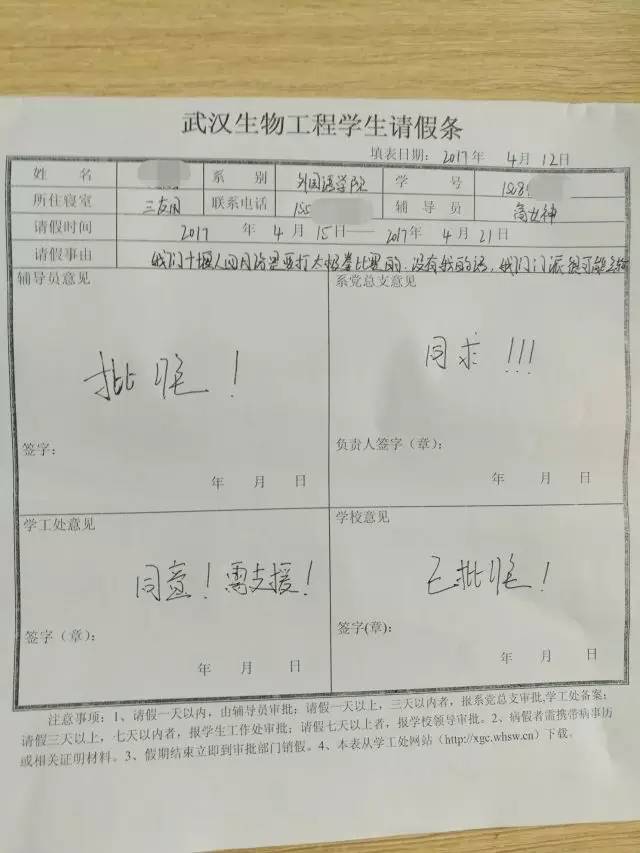 武汉生物工程学生请假条
填表日期: 2017年 4月12日
姓 名 系 别 外国语学院 学 号 1508
所住寝室 联系电话 155 辅 导 员 高女神
请假时间 2017 年 4 月 15日——2017年 4 月 21日
请假事由 我们十堰人四月份是要打太极拳比赛的,没有我的话,我们门派很可能会输
辅导员意见 系党总支意见
批准! 同求!!!
签字: 负责人签字(章):
年 月 日 年 月 日
学工处意见 学校意见
同意!需支援! 已批准!
签字(章): 签字(章):
年 月 日 年 月 日
注意事项:1、请假一天以内,由辅导员审批;请假一天以上,三天以内者,报系党总支审批,学工处备案;
请假三天以上,七天以内者,报学生工作处审批;请假七天以上者,报学校领导审批。2、病假者需携带病事历
或相关证明材料。3、假期结束立即到审批部门销假。4、本表从学工处网站(http://xgc.whsw.cn)下载。